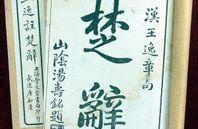 漢王逸章句
楚辭
山陰湯壽銘題
王逸註楚辭